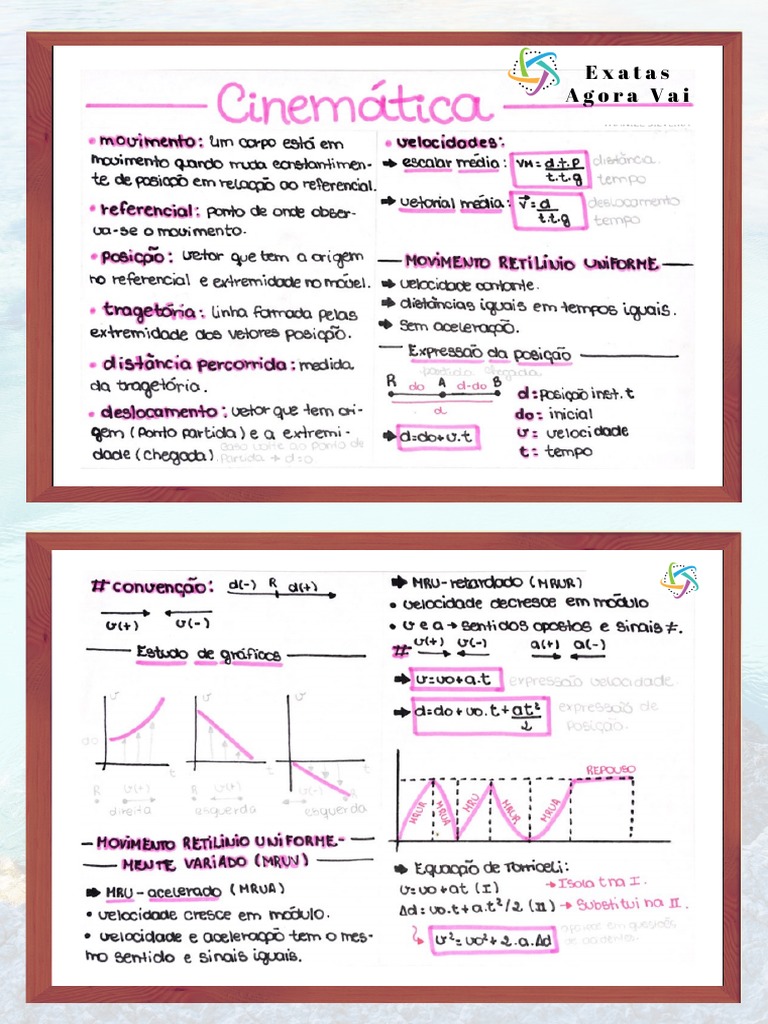 Exatas
Agora Vai
Cinemática
• movimento: Um corpo está em
movimento quando muda constantimen-
te de posição em relação ao referencial.
• referencial: ponto de onde obser-
va-se o movimento.
• posição: vetor que tem a origem
no referencial e extremidade no móvel.
• tragetória: linha formada pelas
extremidade dos vetores posição.
• distância percorrida: medida
da tragetória.
• deslocamento: vetor que tem ori-
gem (ponto partida) e a extremi-
dade (chegada). Caso volte ao ponto de
partida → d=0
• velocidades:
➡ escalar média: VM = d.t.p / t.t.g distância tempo
➡ vetorial média: V⃗ = d / t.t.g deslocamento tempo
MOVIMENTO RETILÍNIO UNIFORME
➡ velocidade contante.
➡ distâncias iguais em tempos iguais.
➡ sem aceleração.
Expressão da posição
partida chegada
R do A d-do B
d
➡ d=do+v.t
d: posição inst. t
do: inicial
v= velocidade
t= tempo
# convenção: d(-) R d(+)
v(+) v(-)
Estudo de gráficos
v v v
do t t t
R v(+) R v(-) R v(-)
direita esquerda esquerda
MOVIMENTO RETILÍNIO UNIFORME-
MENTE VARIADO (MRUV)
➡ MRU - acelerado (MRUA)
• velocidade cresce em módulo.
• velocidade e aceleração tem o mes-
mo sentido e sinais iguais.
➡ MRU-retardado (MRUR)
• velocidade decresce em módulo
• v e a → sentidos opostos e sinais ≠.
# v(+) v(-) a(+) a(-)
➡ v=vo+a.t expressão velocidade.
➡ d=do+vo.t+at²/2 expressão de
posição.
REPOUSO
MRUA MRUA MRU MRUR MRUA
➡ Equação de Torriceli:
v=vo+at (I) → Isola t na I.
Δd=vo.t+a.t²/2 (II) → Substitui na II.
v²=vo²+2.a.Δd